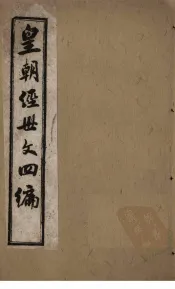 皇朝經世文四編